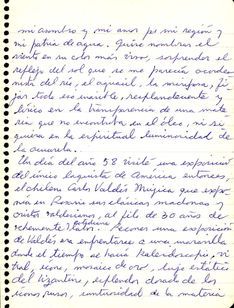 mi asombro y mi amor por mi región y
mi patria de agua. Quise nombrar el
viento en su color más vivo, sorprender el
reflejo del sol que se me parecía
del río, el aguacil, la mariposa,
todo ese inasible, resplandeciente y
lírico en la transparencia de una mate
ria que no encontraba en el óleo, ni si
quiera en la espiritual luminosidad de
la acuarela.
Un día del año 58 visité una exposición
del único laquista de América entonces,
el chileno Carlos Valdés Mujica que expo
nía en Rosario sus clásicas madonas y
cristos al filo de 30 años de
Recorrer una exposición
de Valdés era enfrentarse a una maravilla
donde el tiempo se hacía kaleidoscopio, vi
tral, icono, mosaico de oro, lujo estático
del bizantino, esplendor dorado de los
iconos rusos, suntuosidad de la materia